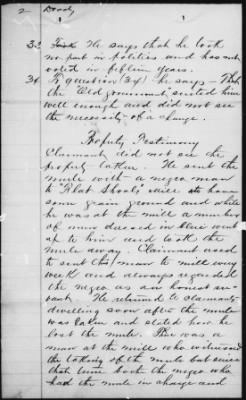 2 Doody
33 He says that he took
no part in politics and has not
voted in fifteen years.
34 To question (34) he says – That
the "Old government" suited him
well enough and did not see
the necessity of a change.
Property Testimony
Claimant did not see the
property taken. He sent the
mule with a negro man
to "Flat Shoals" Mill to have
some grain ground and while
he was at the mill a number
of men dressed in blue went
up to him and took the
mule away. Claimant used
to send this man to mill every
week and always regarded
the negro as an honest ser-
vant. He returned to claimants
dwelling soon after the mule
was taken and stated how he
lost the mule. There was a
man at the mill who witnessed
the taking of the mule but since
that time both the negro who
had the mule in charge and